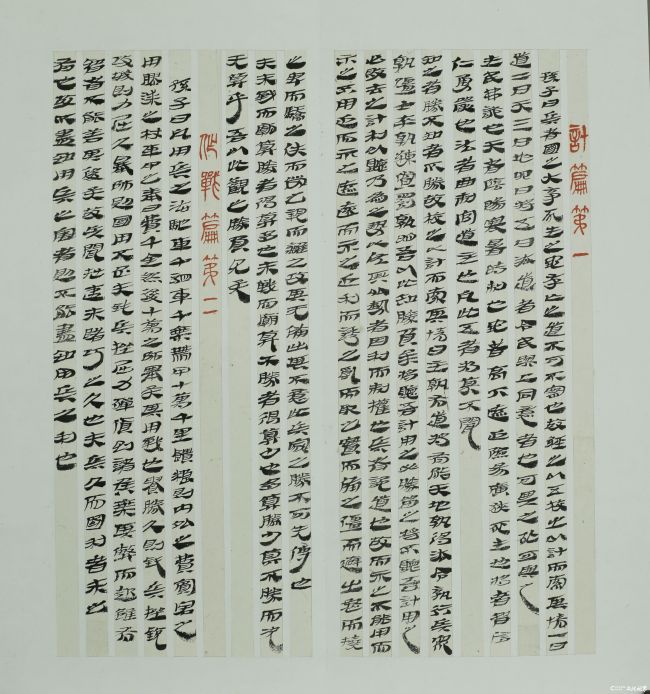 計篇第一
孫子曰兵者國之大事死生之地存亡之道不可不察也故經之以五校之以計而索其情一曰
道二曰天三曰地四曰將五曰法道者令民與上同意者也可與之死可與之
生民弗詭也天者陰陽寒暑時制也地者高下遠近險易廣狹死生也將者智信
仁勇嚴也法者曲制官道主用也凡此五者將莫不聞
知之者勝不知者不勝故校之以計而索其情曰主孰有道將孰能天地孰得法令孰行兵衆
孰強士卒孰練賞罰孰明吾以此知勝負矣將聽吾計用之必勝留之將不聽吾計用之
必敗去之計利以聽乃爲之勢以佐其外勢者因利而制權也兵者詭道也故能而示之不能用而
示之不用近而示之遠遠而示之近利而誘之亂而取之實而備之強而避之怒而撓
之卑而驕之佚而勞之親而離之攻其無備出其不意此兵家之勝不可先傳也
夫未戰而廟算勝者得算多也未戰而廟算不勝者得算少也多算勝少算不勝而況
无算乎吾以此觀之勝負見矣
作戰篇第二
孫子曰凡用兵之法馳車千駟革車千乘帶甲十萬千里饋糧則内外之費賓客之
用膠漆之材車甲之奉費千金然後十萬之師舉矣其用戰也貴勝久則鈍兵挫銳
攻城則力屈久暴師則國用不足夫鈍兵挫屈力殫貨則諸侯乘其弊而起雖有
智者不能善其後矣故兵聞拙速未睹巧之久也夫兵久而國利者未之
有也故不盡知用兵之害者則不能盡知用兵之利也